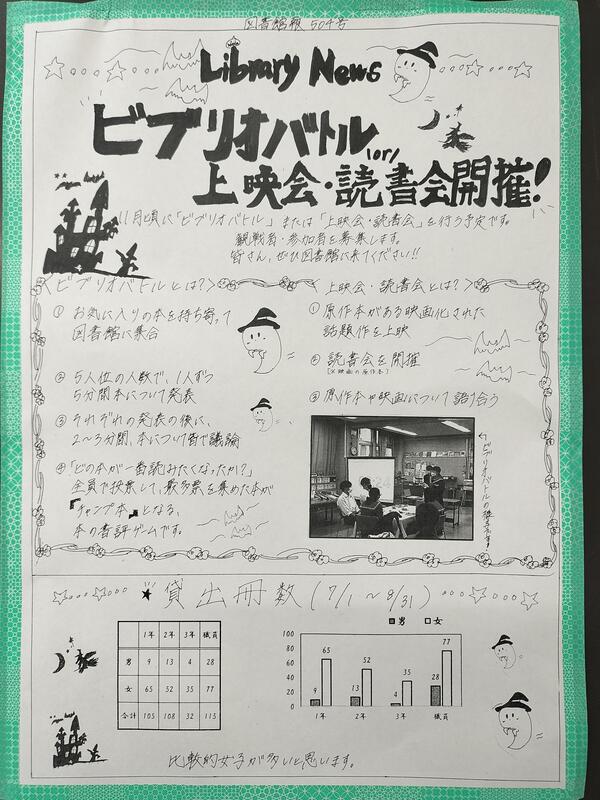 図書館報 504号
Library News
ビブリオバトル
(or)
上映会・読書会開催!
11月頃に「ビブリオバトル」または「上映会・読書会」を行う予定です。
観戦者・参加者を募集します。
皆さん、ぜひ図書館に来てください!!
<ビブリオバトルとは?>
① お気に入りの本を持ち寄って
図書館に集合
② 5人位の人数で、1人ずつ
5分間本について発表
③ それぞれの発表の後に、
2~3分間、本について皆で議論
④「どの本が一番読みたくなったか?」
全員で投票して、最多票を集めた本が
『チャンプ本』となる、
本の書評ゲームです。
<上映会・読書会とは?>
① 原作本がある映画化された
話題作を上映
② 読書会を開催
(※映画の原作本)
③ 原作本や映画について語り合う
←ビブリオバトルの様子です
★貸出冊数(7/1~8/31)
1年 2年 3年 職員
男 9 13 4 28
女 65 52 35 77
合計 105 108 32 115
男 女
100
80
60
40
20
0
9 65 13 52 4 35 28 77
1年 2年 3年 職員
比較的女子が多いと思います。